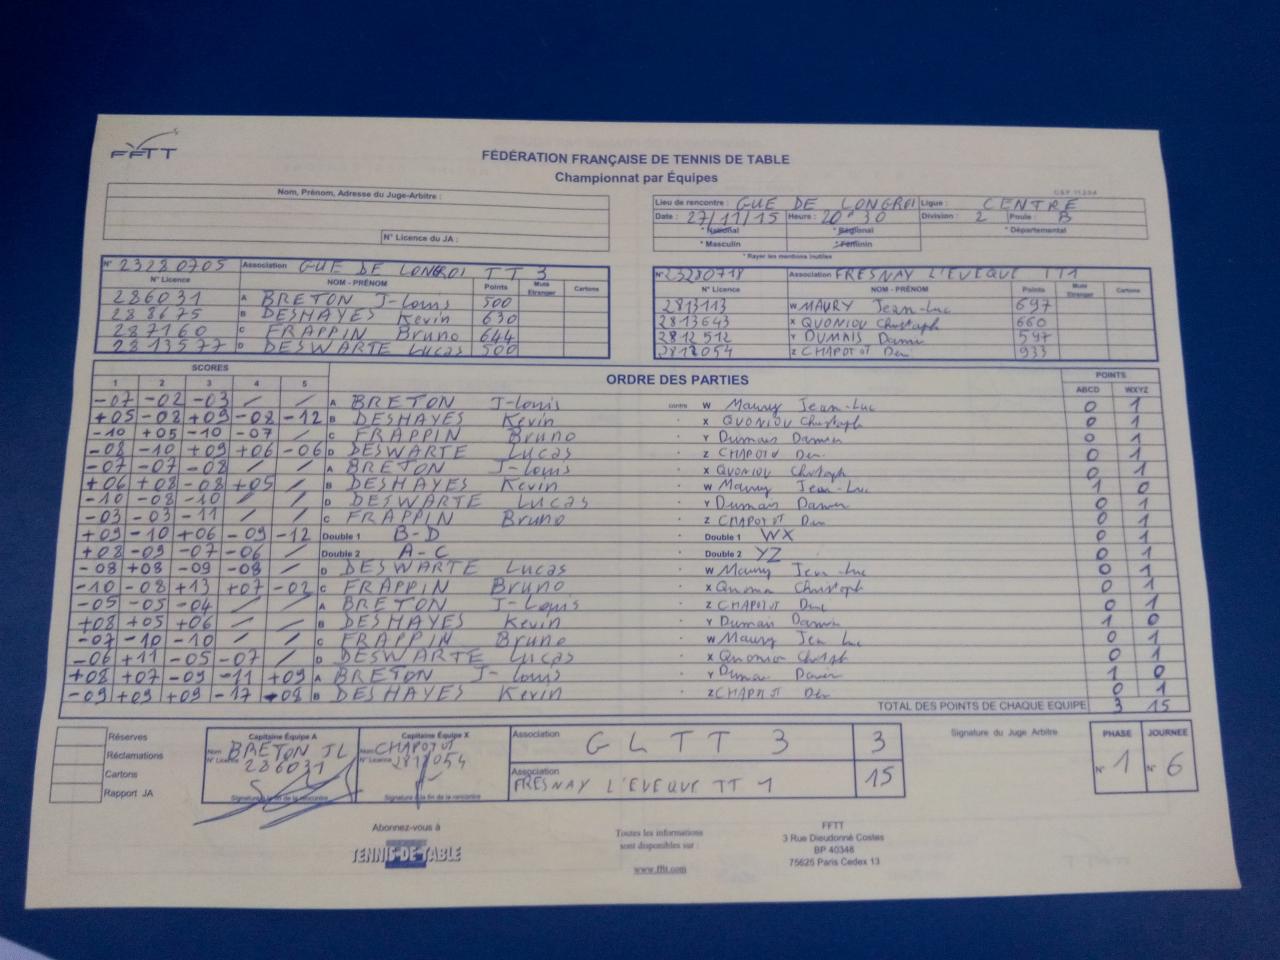 FFTT
FÉDÉRATION FRANÇAISE DE TENNIS DE TABLE
Championnat par Équipes
Nom, Prénom, Adresse du Juge-Arbitre :
N° Licence du JA :
Lieu de rencontre : GUE DE LONGROI Ligue : CENTRE
Date : 27/11/15 Heure : 20h30 Division : 2 Poule : B
* National * Régional * Départemental
* Masculin * Féminin
* Rayer les mentions inutiles
N° 23280705 Association GUE DE LONGROI TT 3
N° Licence NOM - PRÉNOM Points Muté Etranger Cartons
286031 A BRETON J-Louis 500
288675 B DESHAYES Kevin 630
287160 C FRAPPIN Bruno 644
2813577 D DESWARTE Lucas 500
N° 23280718 Association FRESNAY L'EVEQUE TT1
N° Licence NOM - PRÉNOM Points Muté Etranger Cartons
2813113 W MAURY Jean-Luc 697
2813643 X QUONIOU Christoph 660
2812512 Y DUMAIS Damien 597
2812054 Z CHAPOTOT 933
SCORES ORDRE DES PARTIES POINTS
1 2 3 4 5 ABCD WXYZ
-07 -02 -03 / / A BRETON J-Louis contre W Maury Jean-Luc 0 1
+05 -08 +09 -08 -12 B DESHAYES Kevin X QUONIOU Christoph 0 1
-10 +05 -10 -07 / C FRAPPIN Bruno Y Dumais Damien 0 1
-08 -10 +09 +06 -06 D DESWARTE Lucas Z CHAPOTOT 0 1
-07 -07 -08 / / A BRETON J-Louis X QUONIOU Christoph 0 1
+06 +08 -08 +05 / B DESHAYES Kevin W Maury Jean-Luc 1 0
-10 -08 -10 / / D DESWARTE Lucas Y Dumais Damien 0 1
-03 -03 -11 / / C FRAPPIN Bruno Z CHAPOTOT 0 1
+09 -10 +06 -09 -12 Double 1 B-D Double 1 WX 0 1
+08 -09 -07 -06 / Double 2 A-C Double 2 YZ 0 1
-08 +08 -09 -08 / D DESWARTE Lucas W Maury Jean Luc 0 1
-10 -08 +13 +07 -02 C FRAPPIN Bruno X Quoniou Christoph 0 1
-05 -05 -04 / / A BRETON J-Louis Z CHAPOTOT 0 1
+08 +05 +06 / / B DESHAYES Kevin Y Dumais Damien 1 0
-07 -10 -10 / / C FRAPPIN Bruno W Maury Jean Luc 0 1
-06 +11 -05 -07 / D DESWARTE Lucas X Quoniou Christoph 0 1
+08 +07 -09 -11 +09 A BRETON J-Louis Y Dumais Damien 1 0
-09 +09 +09 -17 -08 B DESHAYES Kevin Z CHAPOTOT 0 1
TOTAL DES POINTS DE CHAQUE EQUIPE 3 15
Réserves
Réclamations
Cartons
Rapport JA
Capitaine Équipe A
Nom BRETON JL
N° Licence 286031
Signature à la fin de la rencontre
Capitaine Équipe X
Nom CHAPOTOT
N° Licence 2812054
Signature à la fin de la rencontre
Association GLTT 3 3
Association FRESNAY L'EVEQUE TT 1 15
Signature du Juge Arbitre
PHASE JOURNEE
N° 1 N° 6
Abonnez-vous à
TENNIS-DE-TABLE
Toutes les informations
sont disponibles sur :
www.fftt.com
FFTT
3 Rue Dieudonné Costes
BP 40348
75625 Paris Cedex 13